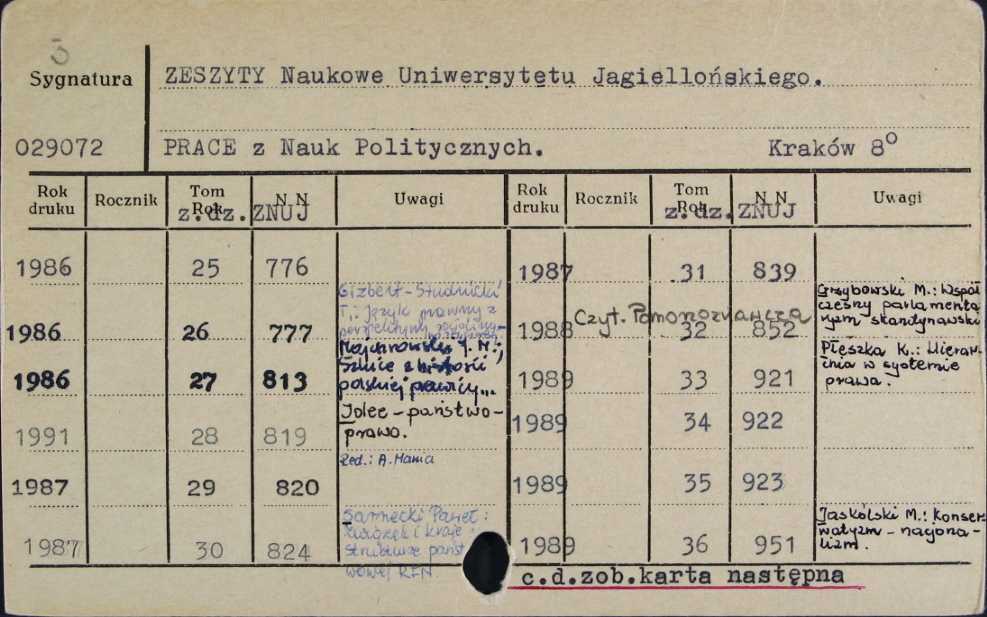 Sygnatura
ZESZYTY Naukowe Uniwersytetu Jagiellońskiego.
029072
PRACE z Nauk Politycznych. Kraków 8°
Rok druku Rocznik Tom Rok N.N Uwagi Rok druku Rocznik Tom Rok N.N Uwagi
z.dz. ZNUJ z.dz. ZNUJ
1986 25 776
1987 31 839
Gizbert-Studnicki
T.: Język prawny z
perspektywy
1986 26 777
Grzybowski M.: Współ
czesny parlamenta
ryzm skandynawski
1988 Czyt. 32 852
J. M.:
Szkice z historii
polskiej prawicy...
1986 27 813
Płeszka K.: Hierar-
chia w systemie
prawa.
1989 33 921
państwo-
prawo.
1991 28 819
Red.: A. Mania
1989 34 922
1987 29 820
1989 35 923
Sarnecki Paweł:
Związek i kraje
w strukturze państ
wowej RFN
1987 30 824
Jaskólski M.: Konser
watyzm-nacjona-
lizm.
1989 36 951
c.d.zob.karta następna